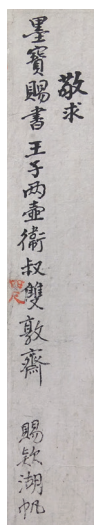 敬求
墨寶賜書 王子两壺衛叔雙敦齋 賜欵湖帆